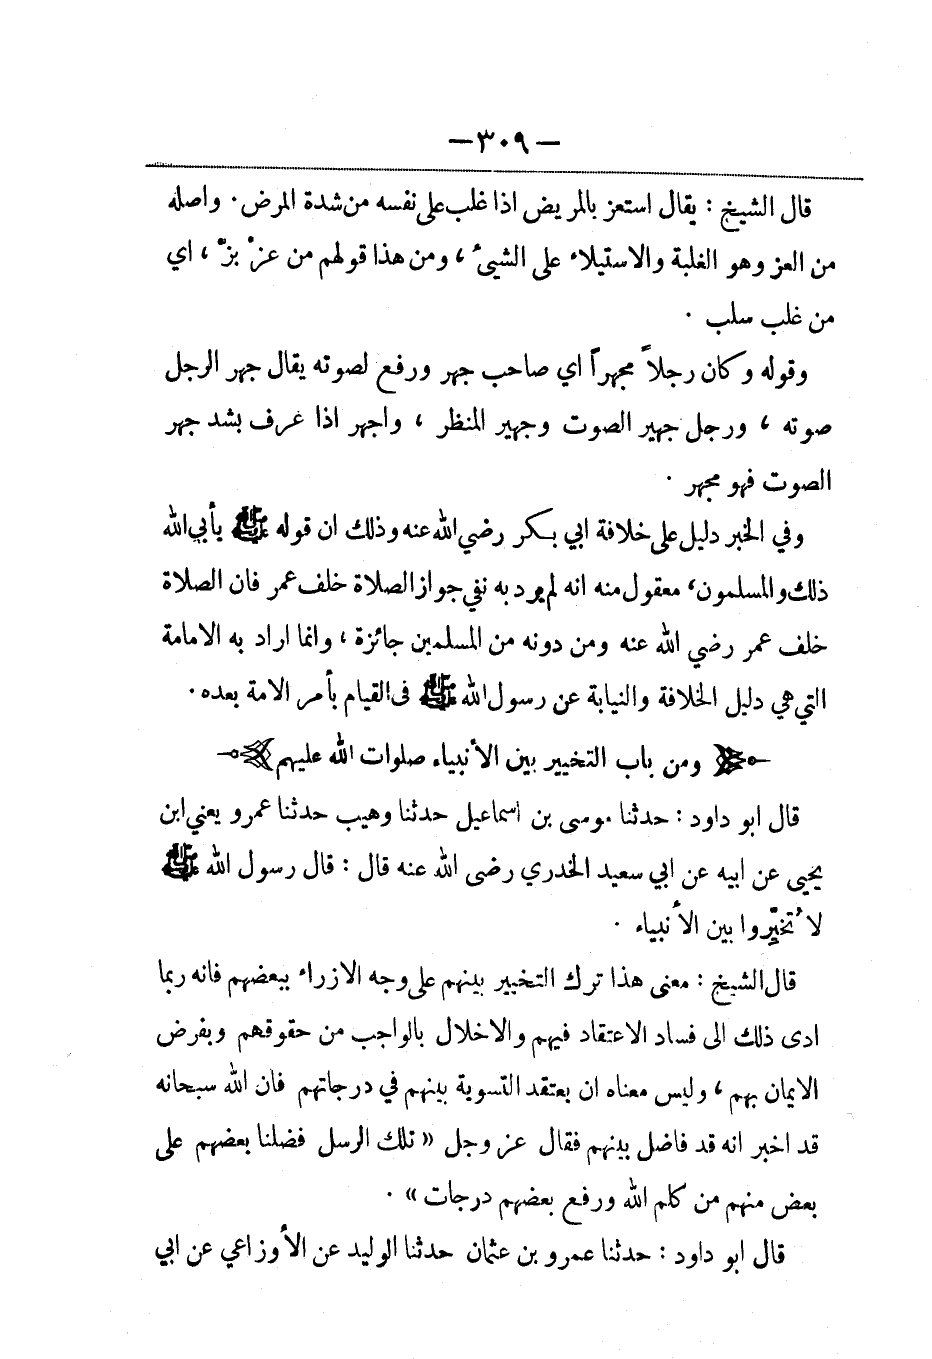 — ٣٠٩ —
قال الشيخ : يقال استعز بالمريض اذا غلب على نفسه من شدة المرض . واصله
من العز وهو الغلبة والاستيلاء على الشيئ ، ومن هذا قولهم من عزْ بزّ ، اي
من غلب سلب .
وقوله وكان رجلاً مجهراً اي صاحب جهر ورفع لصوته يقال جهر الرجل
صوته ، ورجل جهير الصوت وجهير المنظر ، واجهر اذا عرف بشد جهر
الصوت فهو مجهر .
وفي الخبر دليل على خلافة ابي بكر رضي الله عنه وذلك ان قوله ﷺ يأبي الله
ذلك والمسلمون، معقول منه انه لم يرد به نفي جواز الصلاة خلف عمر فان الصلاة
خلف عمر رضي الله عنه ومن دونه من المسلمين جائزة ، وانما اراد به الامامة
التي هي دليل الخلافة والنيابة عن رسول الله ﷺ فى القيام بأمر الامة بعده .
ومن باب التخيير بين الأنبياء صلوات الله عليهم
قال ابو داود : حدثنا موسى بن اسماعيل حدثنا وهيب حدثنا عمرو يعني ابن
يحيى عن ابيه عن ابي سعيد الخدري رضى الله عنه قال : قال رسول الله ﷺ
لا تُخيِّروا بين الأنبياء .
قال الشيخ : معنى هذا ترك التخيير بينهم على وجه الازراء ببعضهم فانه ربما
ادى ذلك الى فساد الاعتقاد فيهم والاخلال بالواجب من حقوقهم وبفرض
الايمان بهم ، وليس معناه ان يعتقد التسوية بينهم في درجاتهم فان الله سبحانه
قد اخبر انه قد فاضل بينهم فقال عز وجل « تلك الرسل فضلنا بعضهم على
بعض منهم من كلم الله ورفع بعضهم درجات » .
قال ابو داود : حدثنا عمرو بن عثمان حدثنا الوليد عن الأوزاعي عن ابي